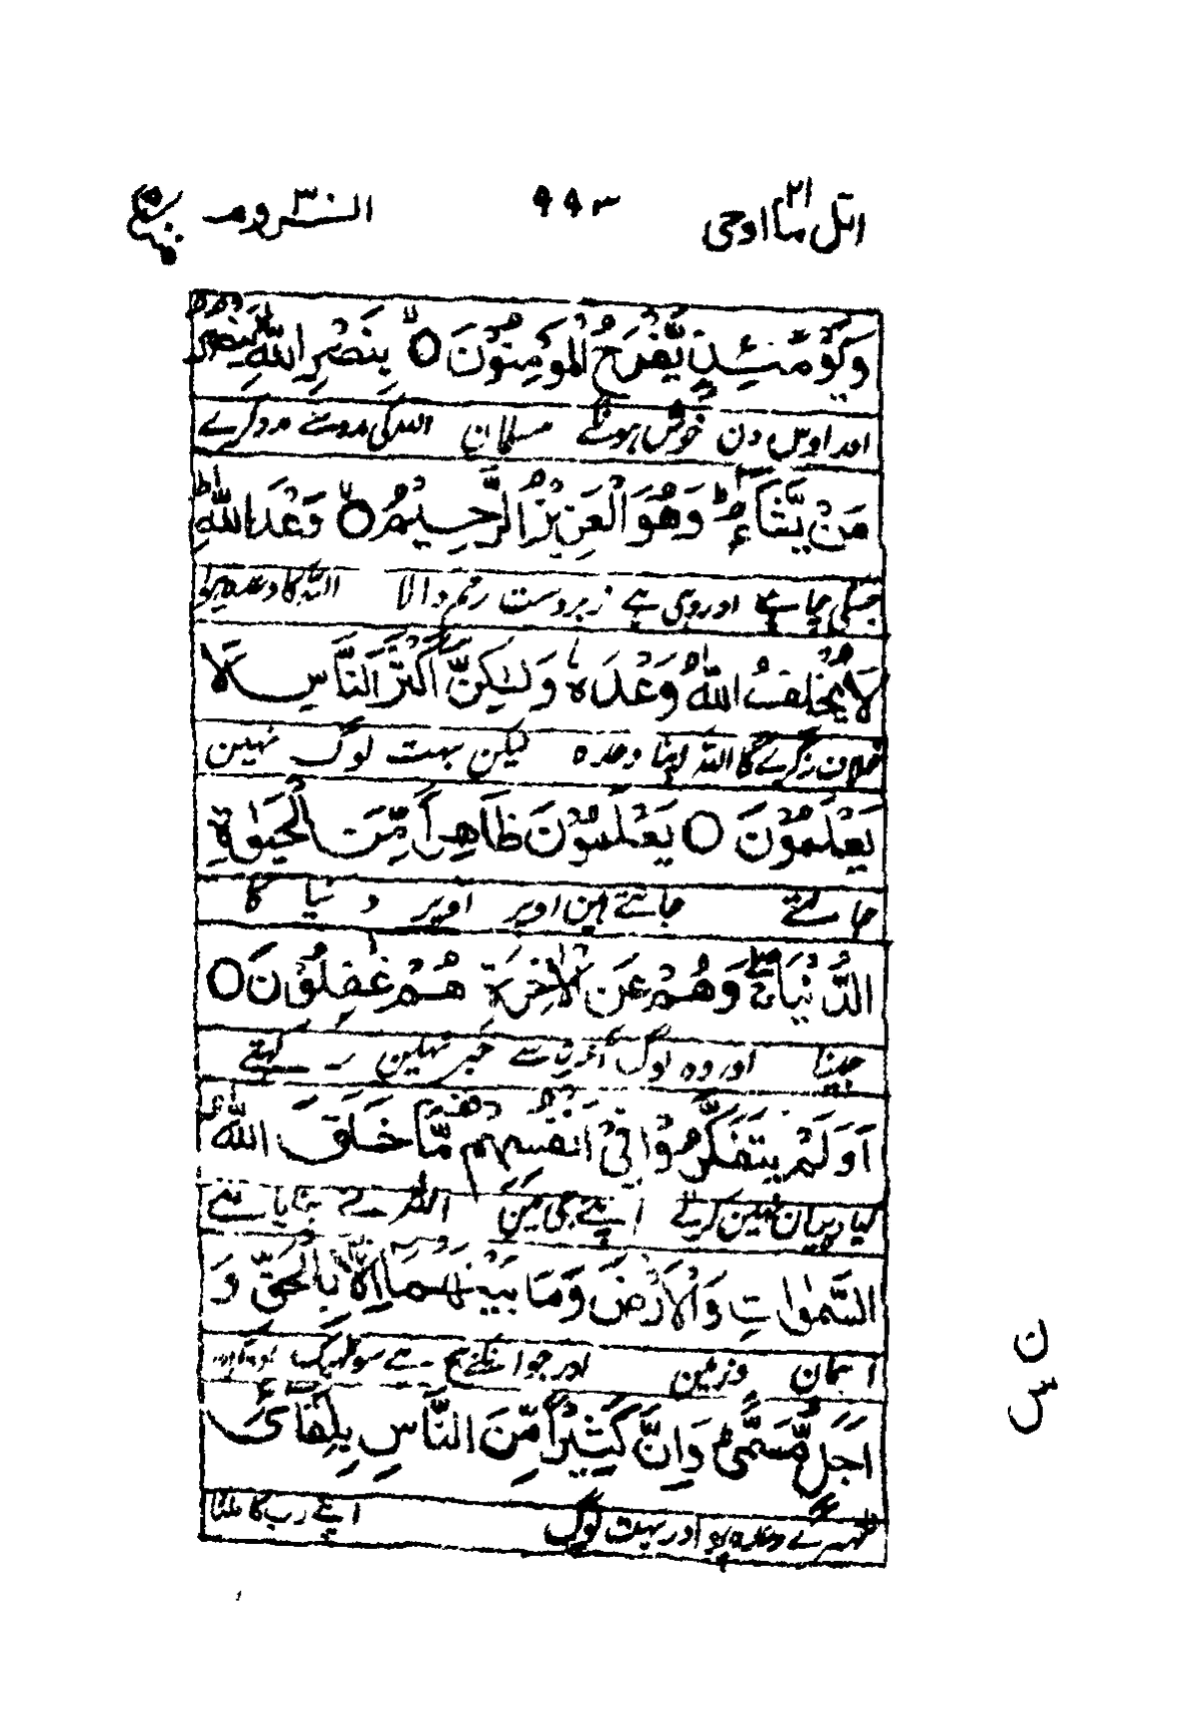 اتل ما اوحی ۲۱
۶۶۳
الروم ۳۰
وَيَوْمَئِذٍ يَّفْرَحُ الْمُؤْمِنُوْنَ ○ بِنَصْرِ اللّٰهِ يَنْصُرُ
اور اوس دن خوش ہونگے مسلمان اللہ کی مدد سے مدد کرے
مَنْ يَّشَآءُ ط وَهُوَ الْعَزِيْزُ الرَّحِيْمُ ○ وَعْدَ اللّٰهِ ط
جسکی چاہے اور وہی ہے زبردست رحم والا اللہ کا وعدہ ہوا
لَا يُخْلِفُ اللّٰهُ وَعْدَهٗ وَلٰكِنَّ اَكْثَرَ النَّاسِ لَا
خلاف نکرے گا اللہ اپنا وعدہ لیکن بہت لوگ نہین
يَعْلَمُوْنَ ○ يَعْلَمُوْنَ ظَاهِرًا مِّنَ الْحَيٰوةِ
جانتے جانتے ہین اوپر اوپر دنیا کا
الدُّنْيَا ج وَهُمْ عَنِ الْاٰخِرَةِ هُمْ غٰفِلُوْنَ ○
جینا اور وہ لوگ آخرت سے خبر نہین رکہتے
اَوَلَمْ يَتَفَكَّرُوْا فِیْٓ اَنْفُسِهِمْ مَّا خَلَقَ اللّٰهُ
کیا دہیان نہین کرتے اپنے جی مین اللہ نے بنایا ہے
السَّمٰوٰتِ وَالْاَرْضَ وَمَا بَيْنَهُمَآ اِلَّا بِالْحَقِّ وَ
آسمان و زمین اور جو انکے بیچ ہے سو ٹھیک
اَجَلٍ مُّسَمًّی ط وَاِنَّ كَثِيْرًا مِّنَ النَّاسِ بِلِقَآئِ
ٹھہرے وعدہ پر اور بہت لوگ اپنے رب کا ملنا
ن
س